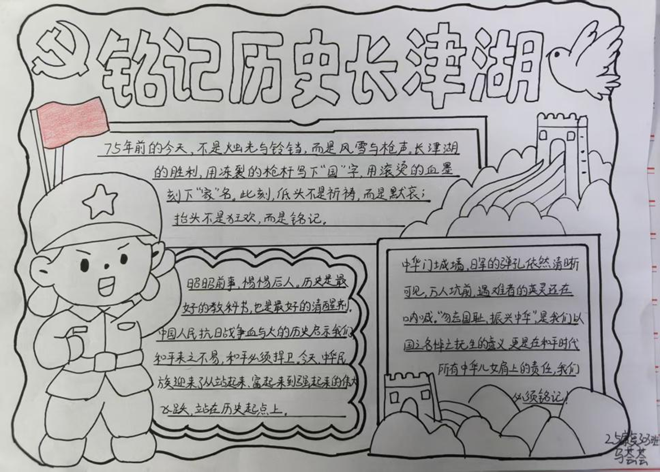 铭记历史长津湖
75年前的今天，不是烛光与铃铛，而是风雪与枪声。长津湖
的胜利，用冻裂的枪杆写下"国"字，用滚烫的血墨
刻下"家"名。此刻，低头不是祈祷，而是默哀；
抬头不是狂欢，而是铭记。
昭昭前事，惕惕后人，历史是最
好的教科书，也是最好的清醒剂，
中国人民抗日战争血与火的历史启示我们
和平来之不易，和平必须捍卫。今天，中华民
族迎来了从站起来、富起来到强起来的伟大
飞跃，站在历史起点上。
中华门城墙，日军的弹孔依然清晰
可见，万人坑前，遇难者的英灵还在
呐喊，"勿忘国耻，振兴中华"是我们以
国之名悼之众生的意义，更是在和平时代
所有中华儿女肩上的责任，我们
必须铭记！
马芸芸